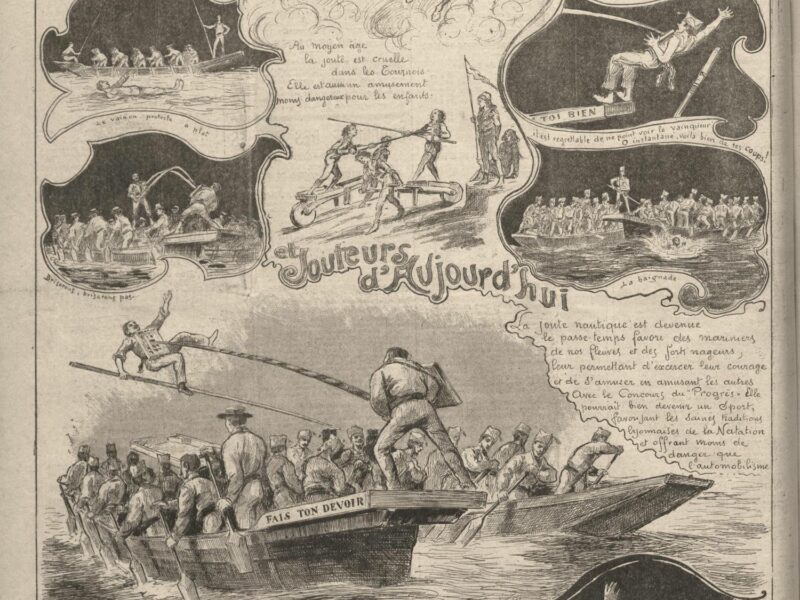 Le vaincu proteste à plat
Au moyen âge
la joute est cruelle
dans les Tournois
Elle est aussi un amusement
moins dangereux pour les enfants.
TOI BIEN
il est regrettable de ne point voir le vainqueur
O instantané, voilà bien de tes coups!
Briserons, briserons pas
La baignade
et Jouteurs
d'Aujourd'hui
La joute nautique est devenue
le passe-temps favori des mariniers
de nos fleuves et des forts nageurs,
leur permettant d'excercer leur courage
et de s'amuser en amusant les autres
Avec le Concours du "Progrès" Elle
pourrait bien devenir un Sport,
favorisant les saines traditions
lyonnaises de la Natation
et offrant moins de
danger que
l'automobilisme
FAIS TON DEVOIR